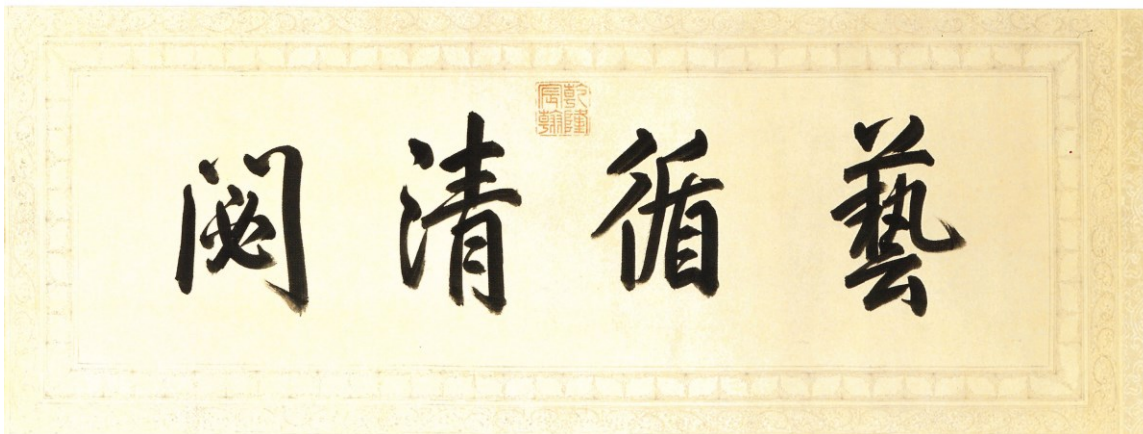 藝循清閟
乾隆宸翰